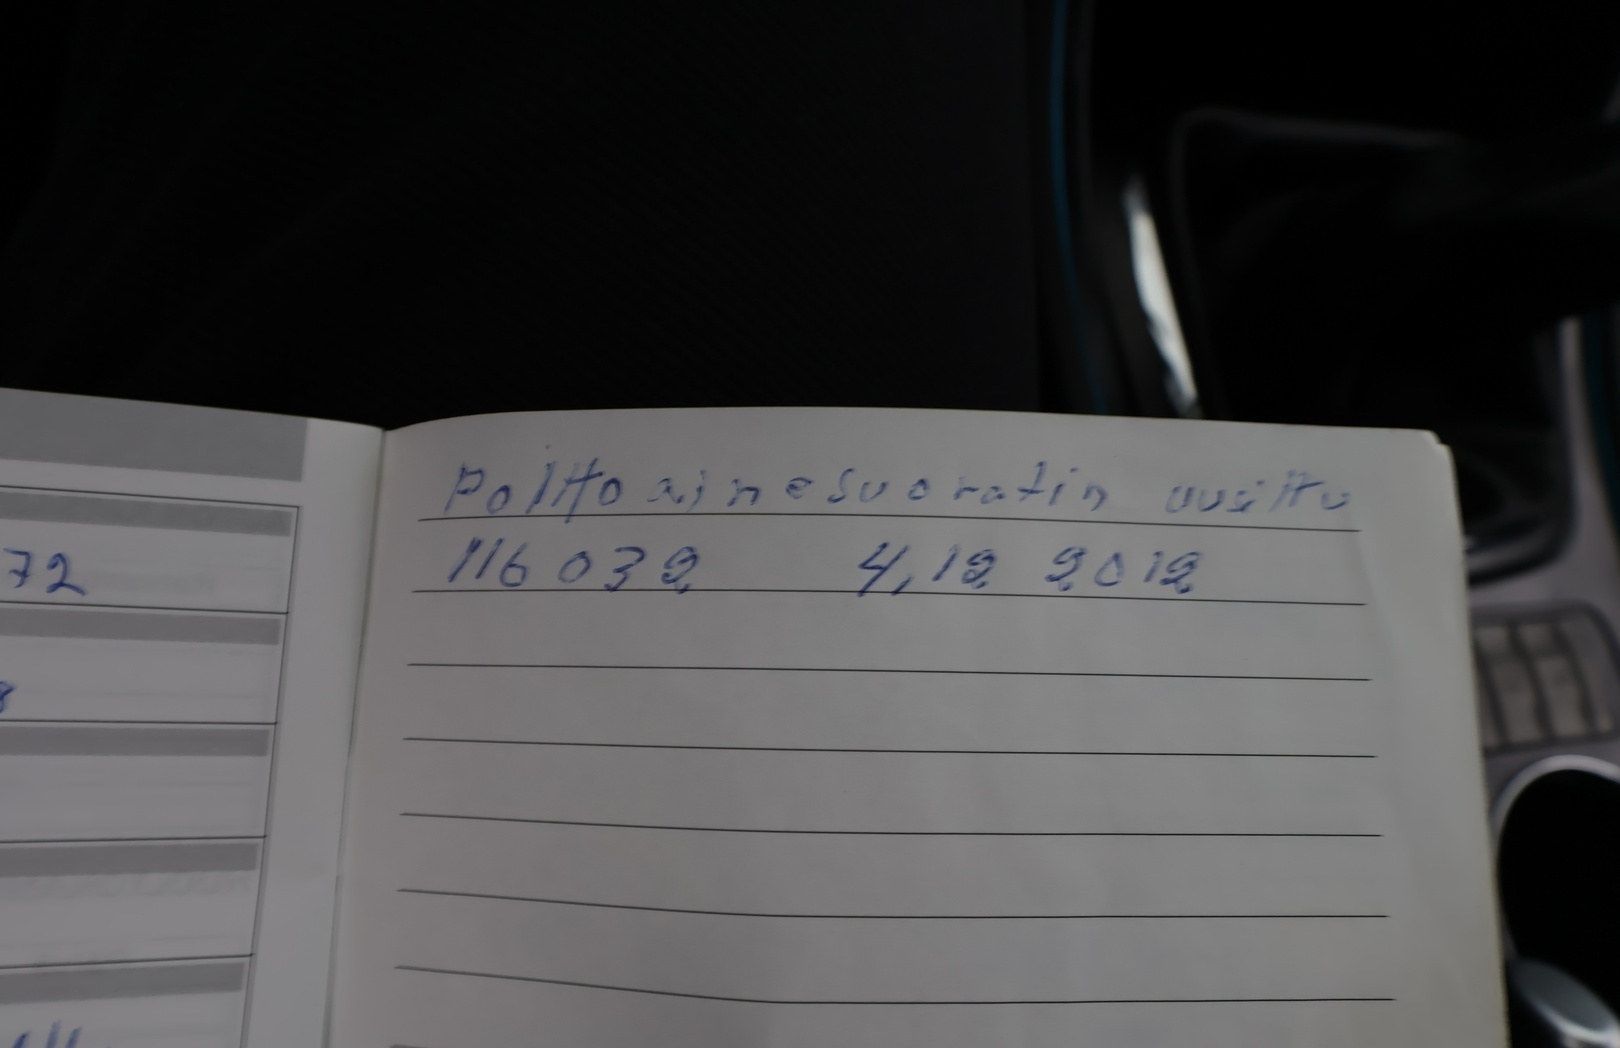 72
Polttoainesuoratin uusittu
116 032 4,12 2012